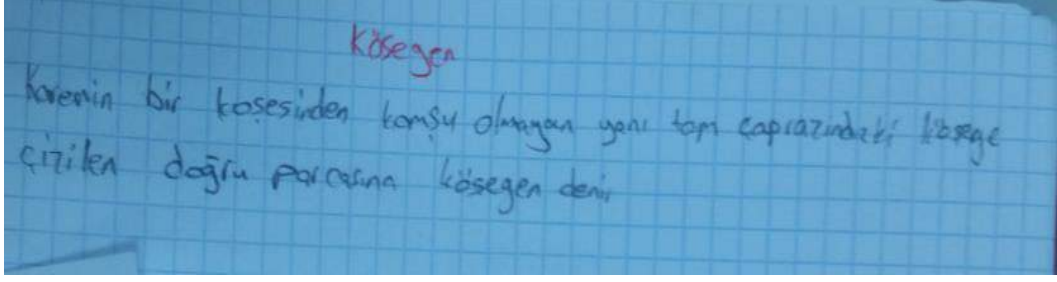 Kösegen
Karenin bir koşesinden komşu olmayan yani tam caprazındaki köşege
çizilen doğru parcasına kösegen denir